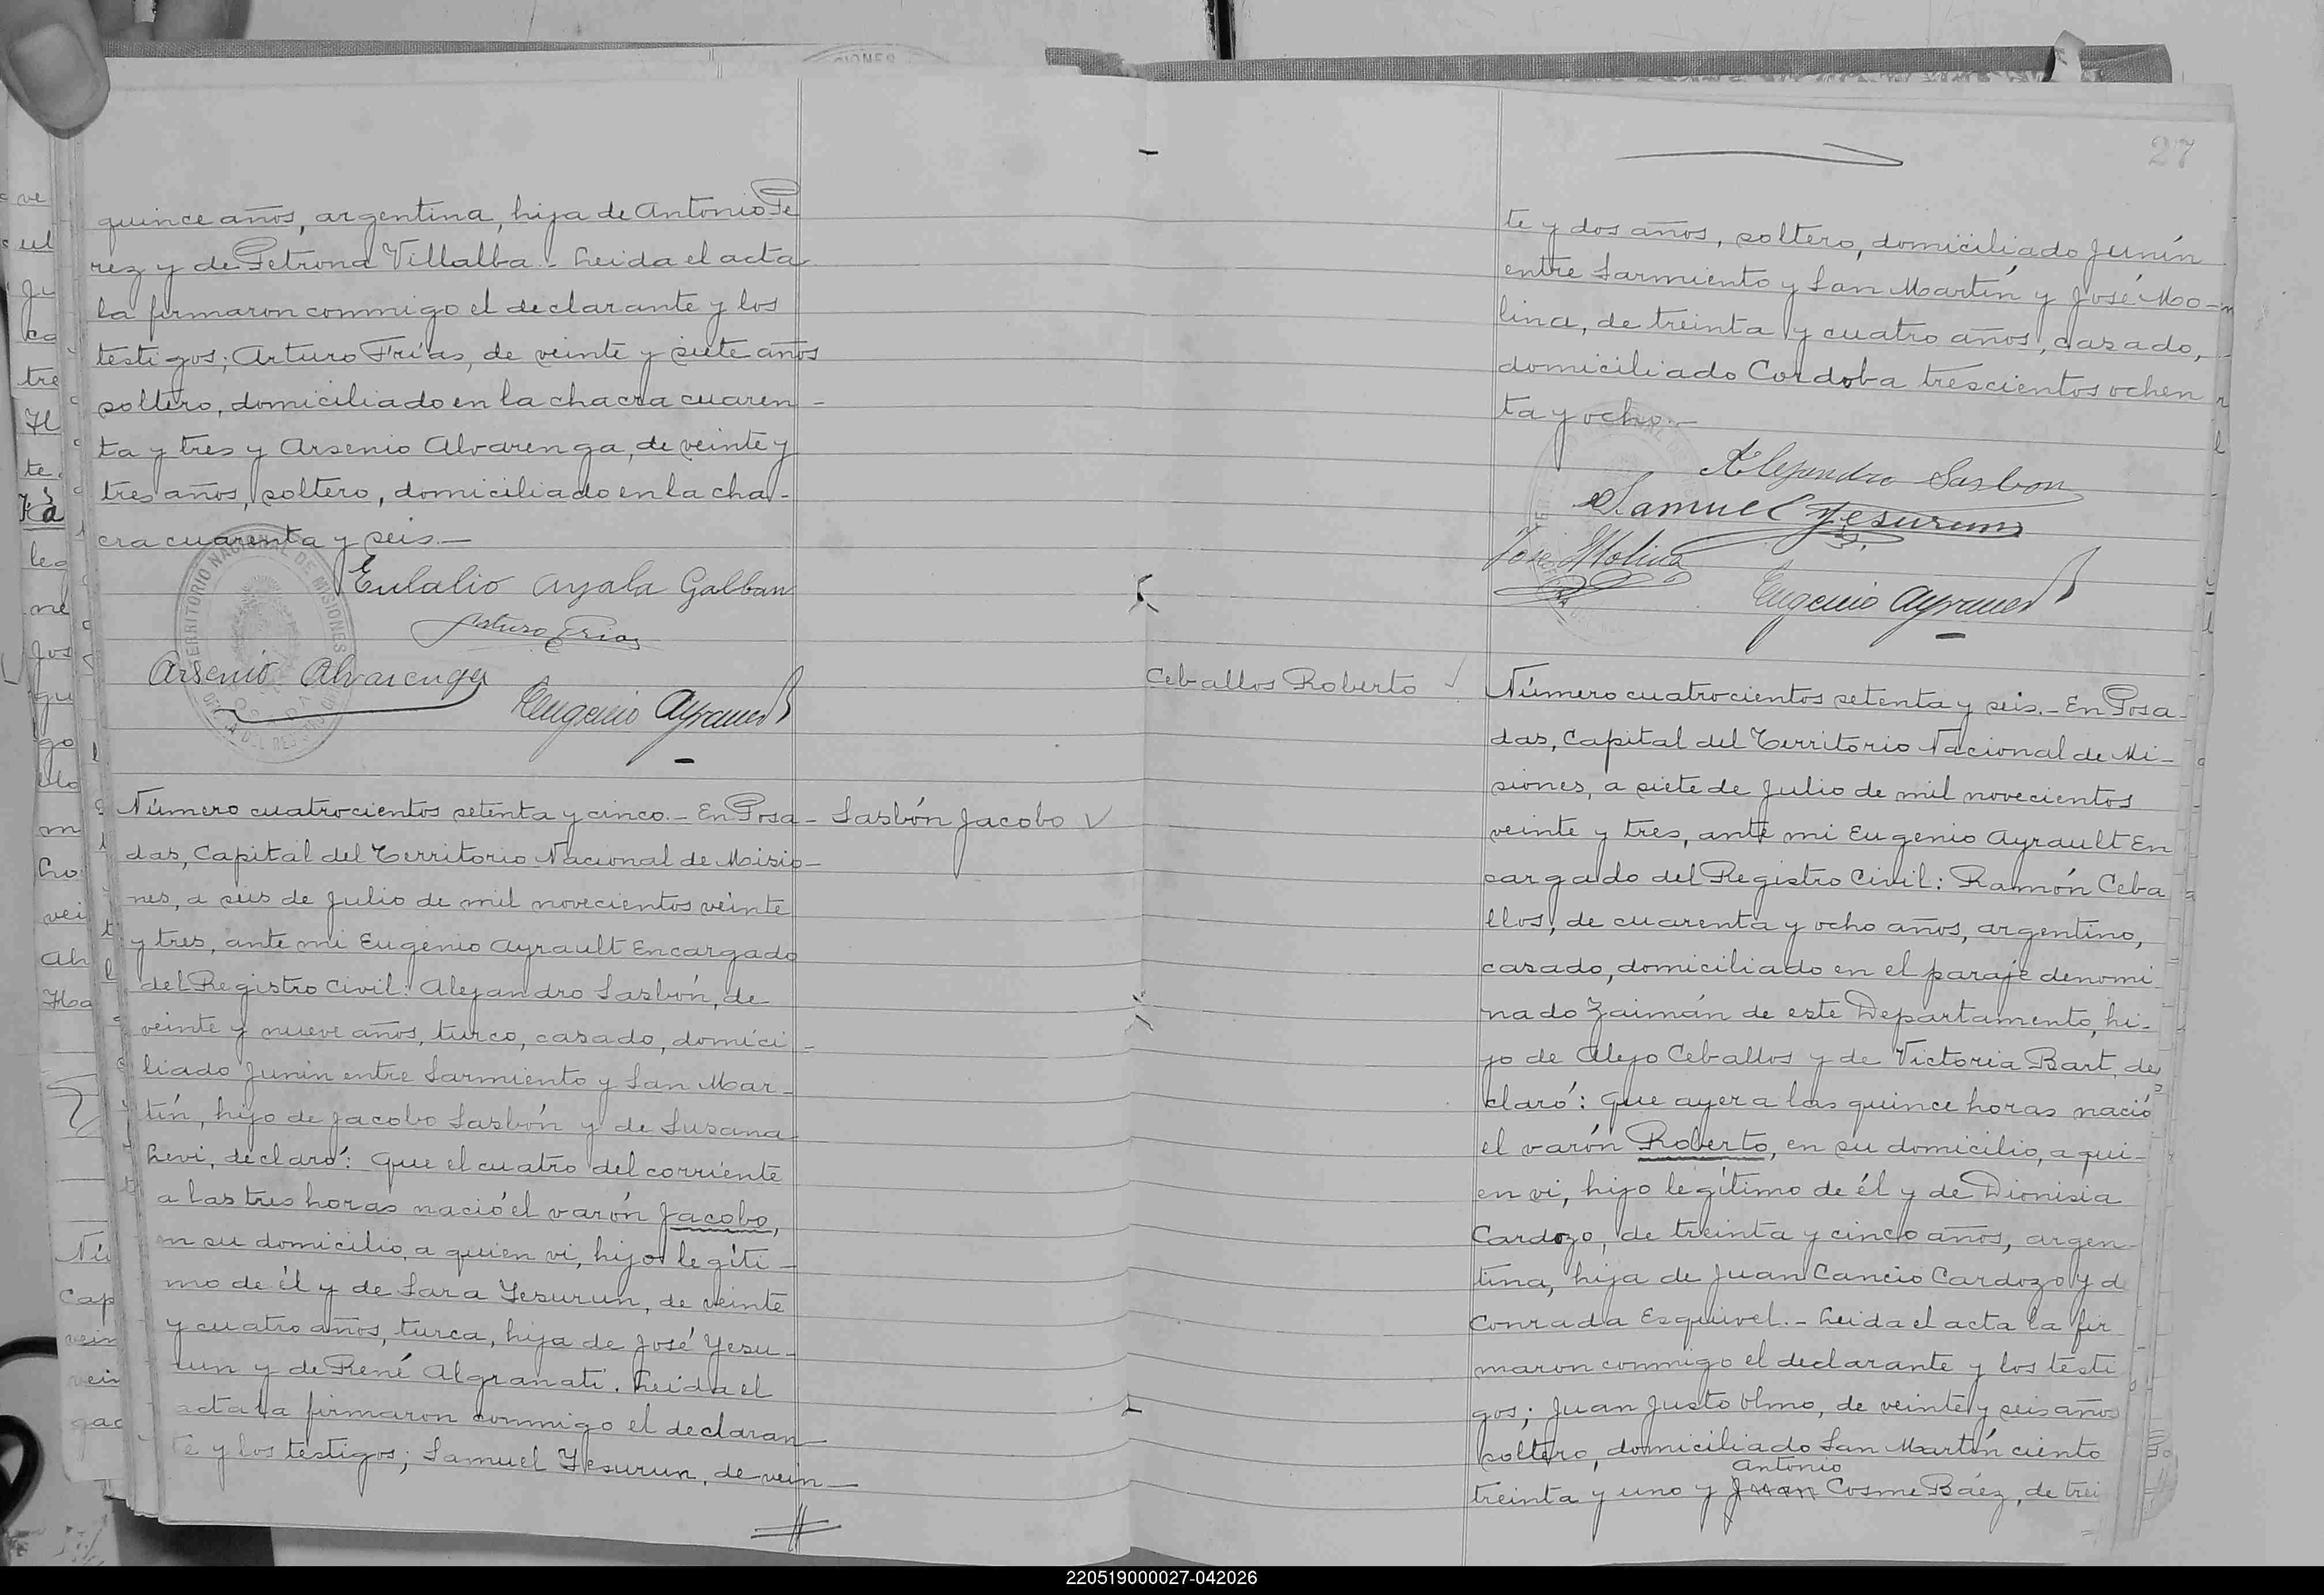 quince años, argentina, hija de Antonio Pe
rez y de Petrona Villalba.- Leida el acta
la firmaron conmigo el declarante y los
testigos; Arturo Frías, de veinte y siete años
soltero, domiciliado en la chacra cuaren-
ta y tres y Arsenio Alvarenga, de veinte y
tres años, soltero, domiciliado en la cha-
cra cuarenta y seis.-
Eulalio Ayala Galban
Arturo Frias
Arsenio Alvarenga
Eugenio Ayrault
TERRITORIO NACIONAL DE MISIONES
Número cuatrocientos setenta y cinco.- En Posa-
Sasbón Jacobo
das, Capital del Territorio Nacional de Misio-
nes, a seis de Julio de mil novecientos veinte
y tres, ante mi Eugenio Ayrault Encargado
del Registro Civil: Alejandro Sasbón, de
veinte y nueve años, turco, casado, domici-
liado Junin entre Sarmiento y San Mar-
tín, hijo de Jacobo Sasbón y de Susana
Levi, declaró: Que el cuatro del corriente
a las tres horas nació el varón Jacobo,
en su domicilio, a quien vi, hijo legíti-
mo de él y de Sara Yesurun, de veinte
y cuatro años, turca, hija de José Yesu-
run y de René Algranati. Leida el
acta la firmaron conmigo el declaran
te y los testigos; Samuel Yesurun, de vein-
27
te y dos años, soltero, domiciliado Junín
entre Sarmiento y San Martín y José Mo-
lina, de treinta y cuatro años, casado,
domiciliado Cordoba trescientos ochen
ta y ocho.-
Alejandro Sasbon
Samuel Yesurun
José Molina
Eugenio Ayrault
Ceballos Roberto
Número cuatrocientos setenta y seis.- En Posa-
das, Capital del Territorio Nacional de Mi-
siones, a siete de Julio de mil novecientos
veinte y tres, ante mi Eugenio Ayrault En
cargado del Registro Civil: Ramón Ceba
llos, de cuarenta y ocho años, argentino,
casado, domiciliado en el paraje denomi
nado Zaimán de este Departamento, hi-
jo de Alejo Ceballos y de Victoria Bart, de
claró: Que ayer a las quince horas nació
el varón Roberto, en su domicilio, a qui-
en vi, hijo legítimo de él y de Dionisia
Cardozo, de treinta y cinco años, argen-
tina, hija de Juan Cancio Cardozo y d
Conrada Esquivel.- Leida el acta la fir
maron conmigo el declarante y los testi
gos; Juan Justo Olmo, de veinte y seis años
soltero, domiciliado San Martín ciento
Antonio
treinta y uno y Juan Cosme Báez, de trei
220519000027-042026